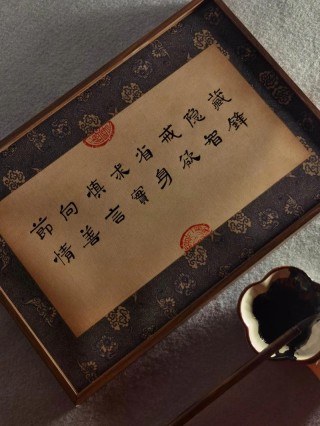 藏鋒
隐智
戒欲
省身
求實
慎言
向善
節情